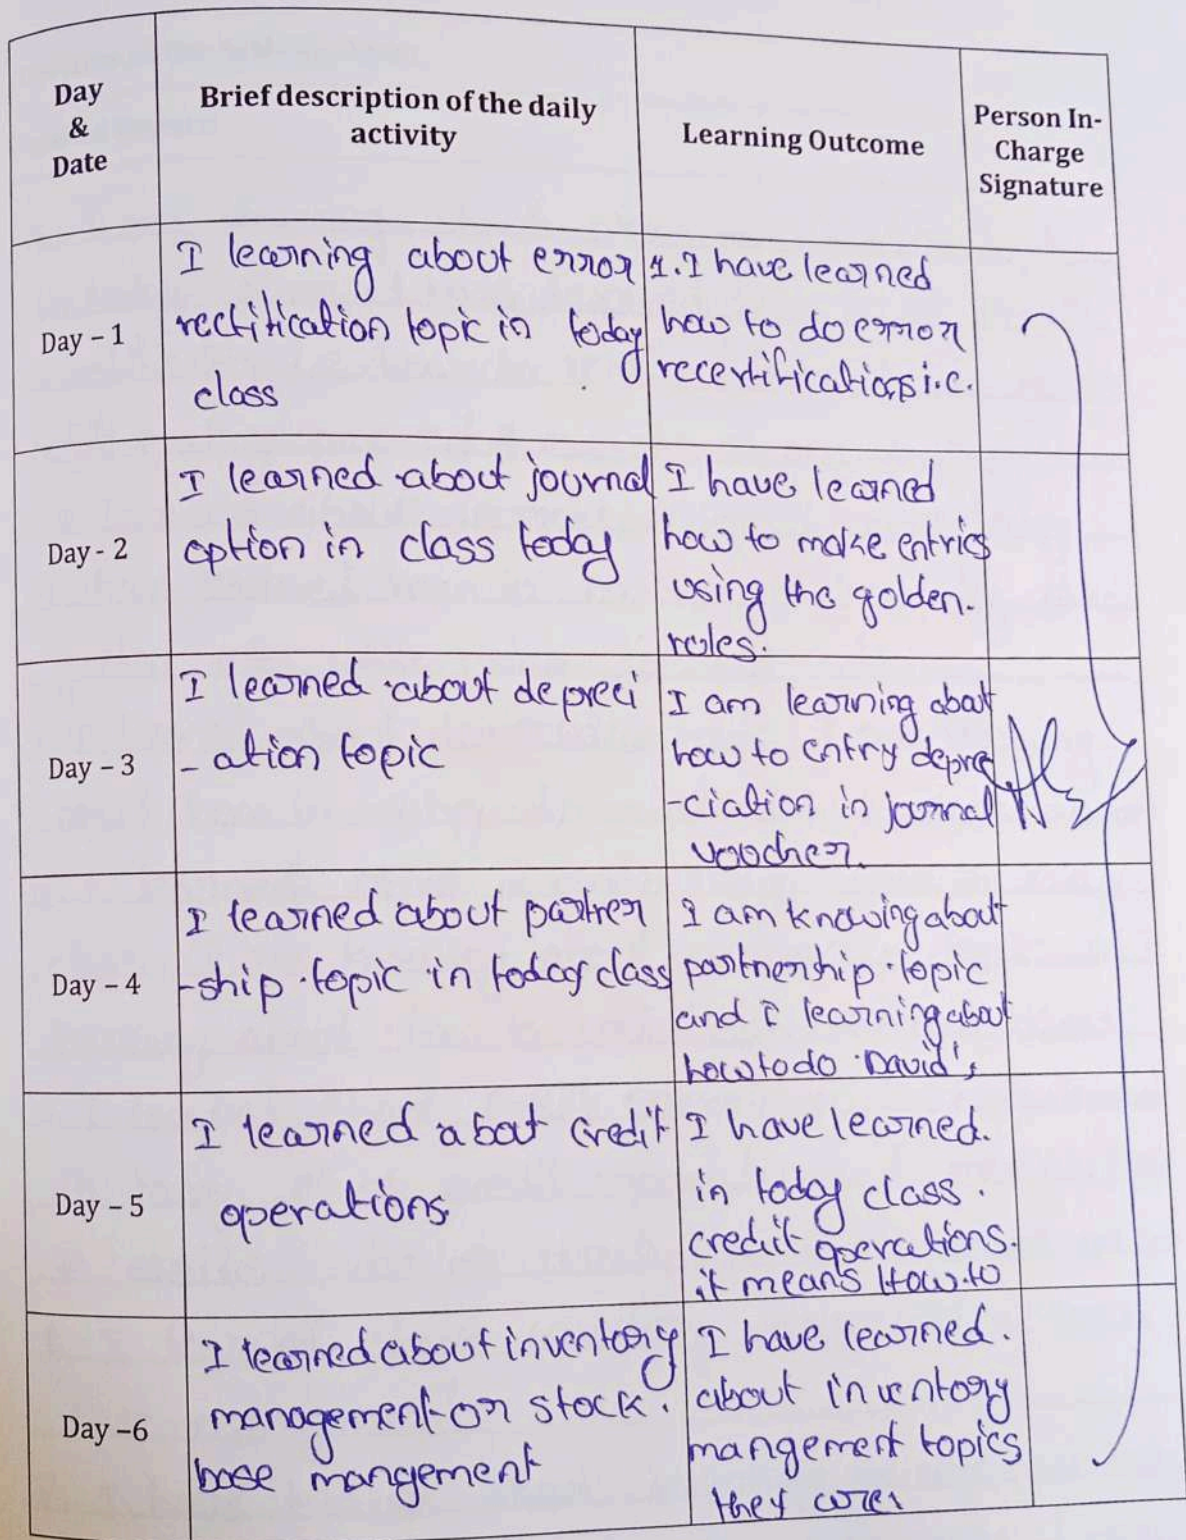 Day
&
Date
Brief description of the daily
activity
Learning Outcome
Person In-
Charge
Signature
Day – 1
I learning about error
rectification topic in today
class
1. I have learned
how to do error
recertifications i.e.
Day - 2
I learned about journal
option in class today
I have learned
how to make entries
using the golden.
rules.
Day – 3
I learned about depreci
- ation topic
I am learning about
how to entry depre
-ciation in journal
voocher.
Day – 4
I learned about partner
-ship topic in today class
I am knowing about
partnership topic
and I learning about
how to do David's
Day – 5
I learned about credit
operations
I have learned.
in today class.
credit operations.
it means How to
Day –6
I learned about inventory
management or stock.
base mangement
I have learned.
about inventory
mangement topics
they